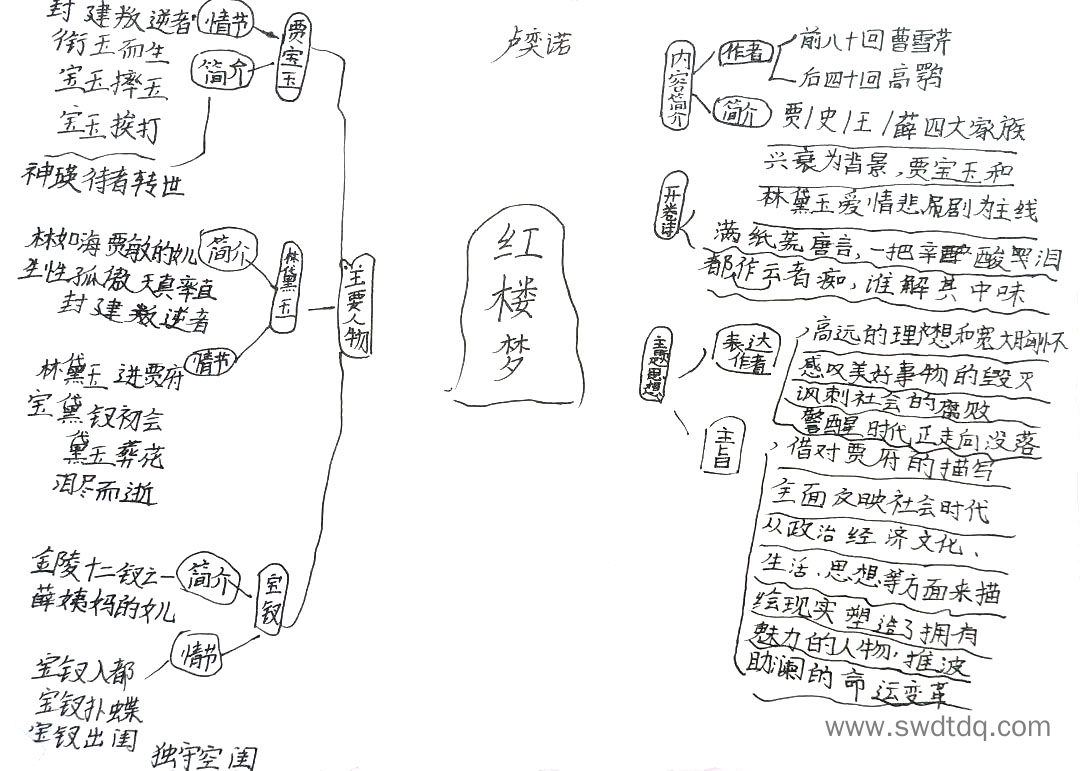 卢奕诺
红
楼
梦
主要人物
贾宝玉
情节
封建叛逆者
衔玉而生
宝玉摔玉
宝玉挨打
简介
神瑛侍者转世
林黛玉
简介
林如海贾敏的女儿
生性孤傲天真率直
封建叛逆者
情节
林黛玉进贾府
宝黛钗初会
黛玉葬花
泪尽而逝
宝钗
简介
金陵十二钗之一
薛姨妈的女儿
情节
宝钗入都
宝钗扑蝶
宝钗出闺
独守空闺
内容简介
作者
前八十回曹雪芹
后四十回高鹗
简介
贾/史/王/薛四大家族
兴衰为背景,贾宝玉和
林黛玉爱情悲剧为主线
开卷诗
满纸荒唐言,一把辛酸泪
都作云者痴,谁解其中味
主题思想
表达
作者
高远的理想和宽大胸怀
感叹美好事物的毁灭
讽刺社会的腐败
警醒时代正走向没落
主旨
借对贾府的描写
全面反映社会时代
从政治经济文化、
生活、思想等方面来描
绘现实塑造了拥有
魅力的人物,推波
助澜的命运变革
www.swdtdq.com